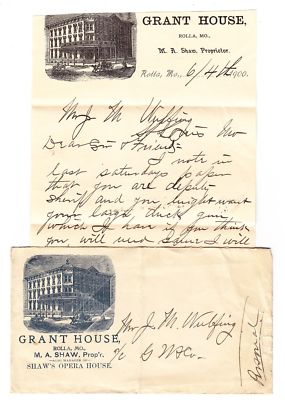 GRANT HOUSE,
ROLLA, MO.,
M. A. Shaw, Proprietor.
Rolla, Mo., 6/4th 1900.
Mr J M Wulfing
St Louis Mo
Dear Sir & Friend
I note in
last saturdays paper
that you are deputy
sheriff and you might want
your large, thick gun
which I have if you think
you will need same I will
GRANT HOUSE,
ROLLA, MO.
M. A. SHAW, Prop'r.
ALSO MANAGER OF
SHAW'S OPERA HOUSE.
Mr J. M. Wulfing
c/o G W & Co.
Personal